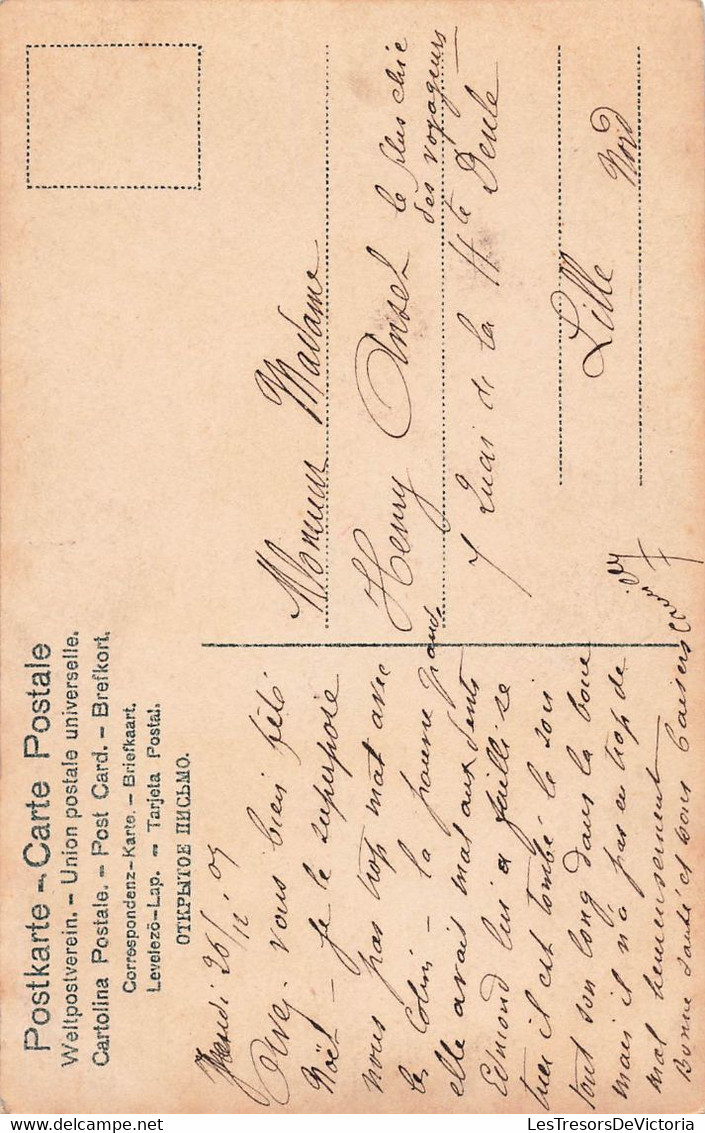 Postkarte – Carte Postale
Weltpostverein. – Union postale universelle.
Cartolina Postale. – Post Card. – Brefkort.
Correspondenz-Karte. – Briefkaart.
Levelezö-Lap. – Tarjeta Postal.
ОТКРЫТОЕ ПИСЬМО.
26/12/07
Avez vous bien fêté
Noël – Je le suppose
nous pas trop mal avec
les Colin – la pauvre grand.
elle avait mal aux dents
Edmond lui a failli se
tuer il est tombé le soir
tout son long dans la boue
mais il n'a pas eu trop de
mal heureusement
Bonne santé et bons baisers
Monsieur Madame
Henry Ansel le plus chic
des voyageurs
7 Quai de la Hte Deule
Lille Nord
LesTresorsDeVictoria
www.delcampe.net